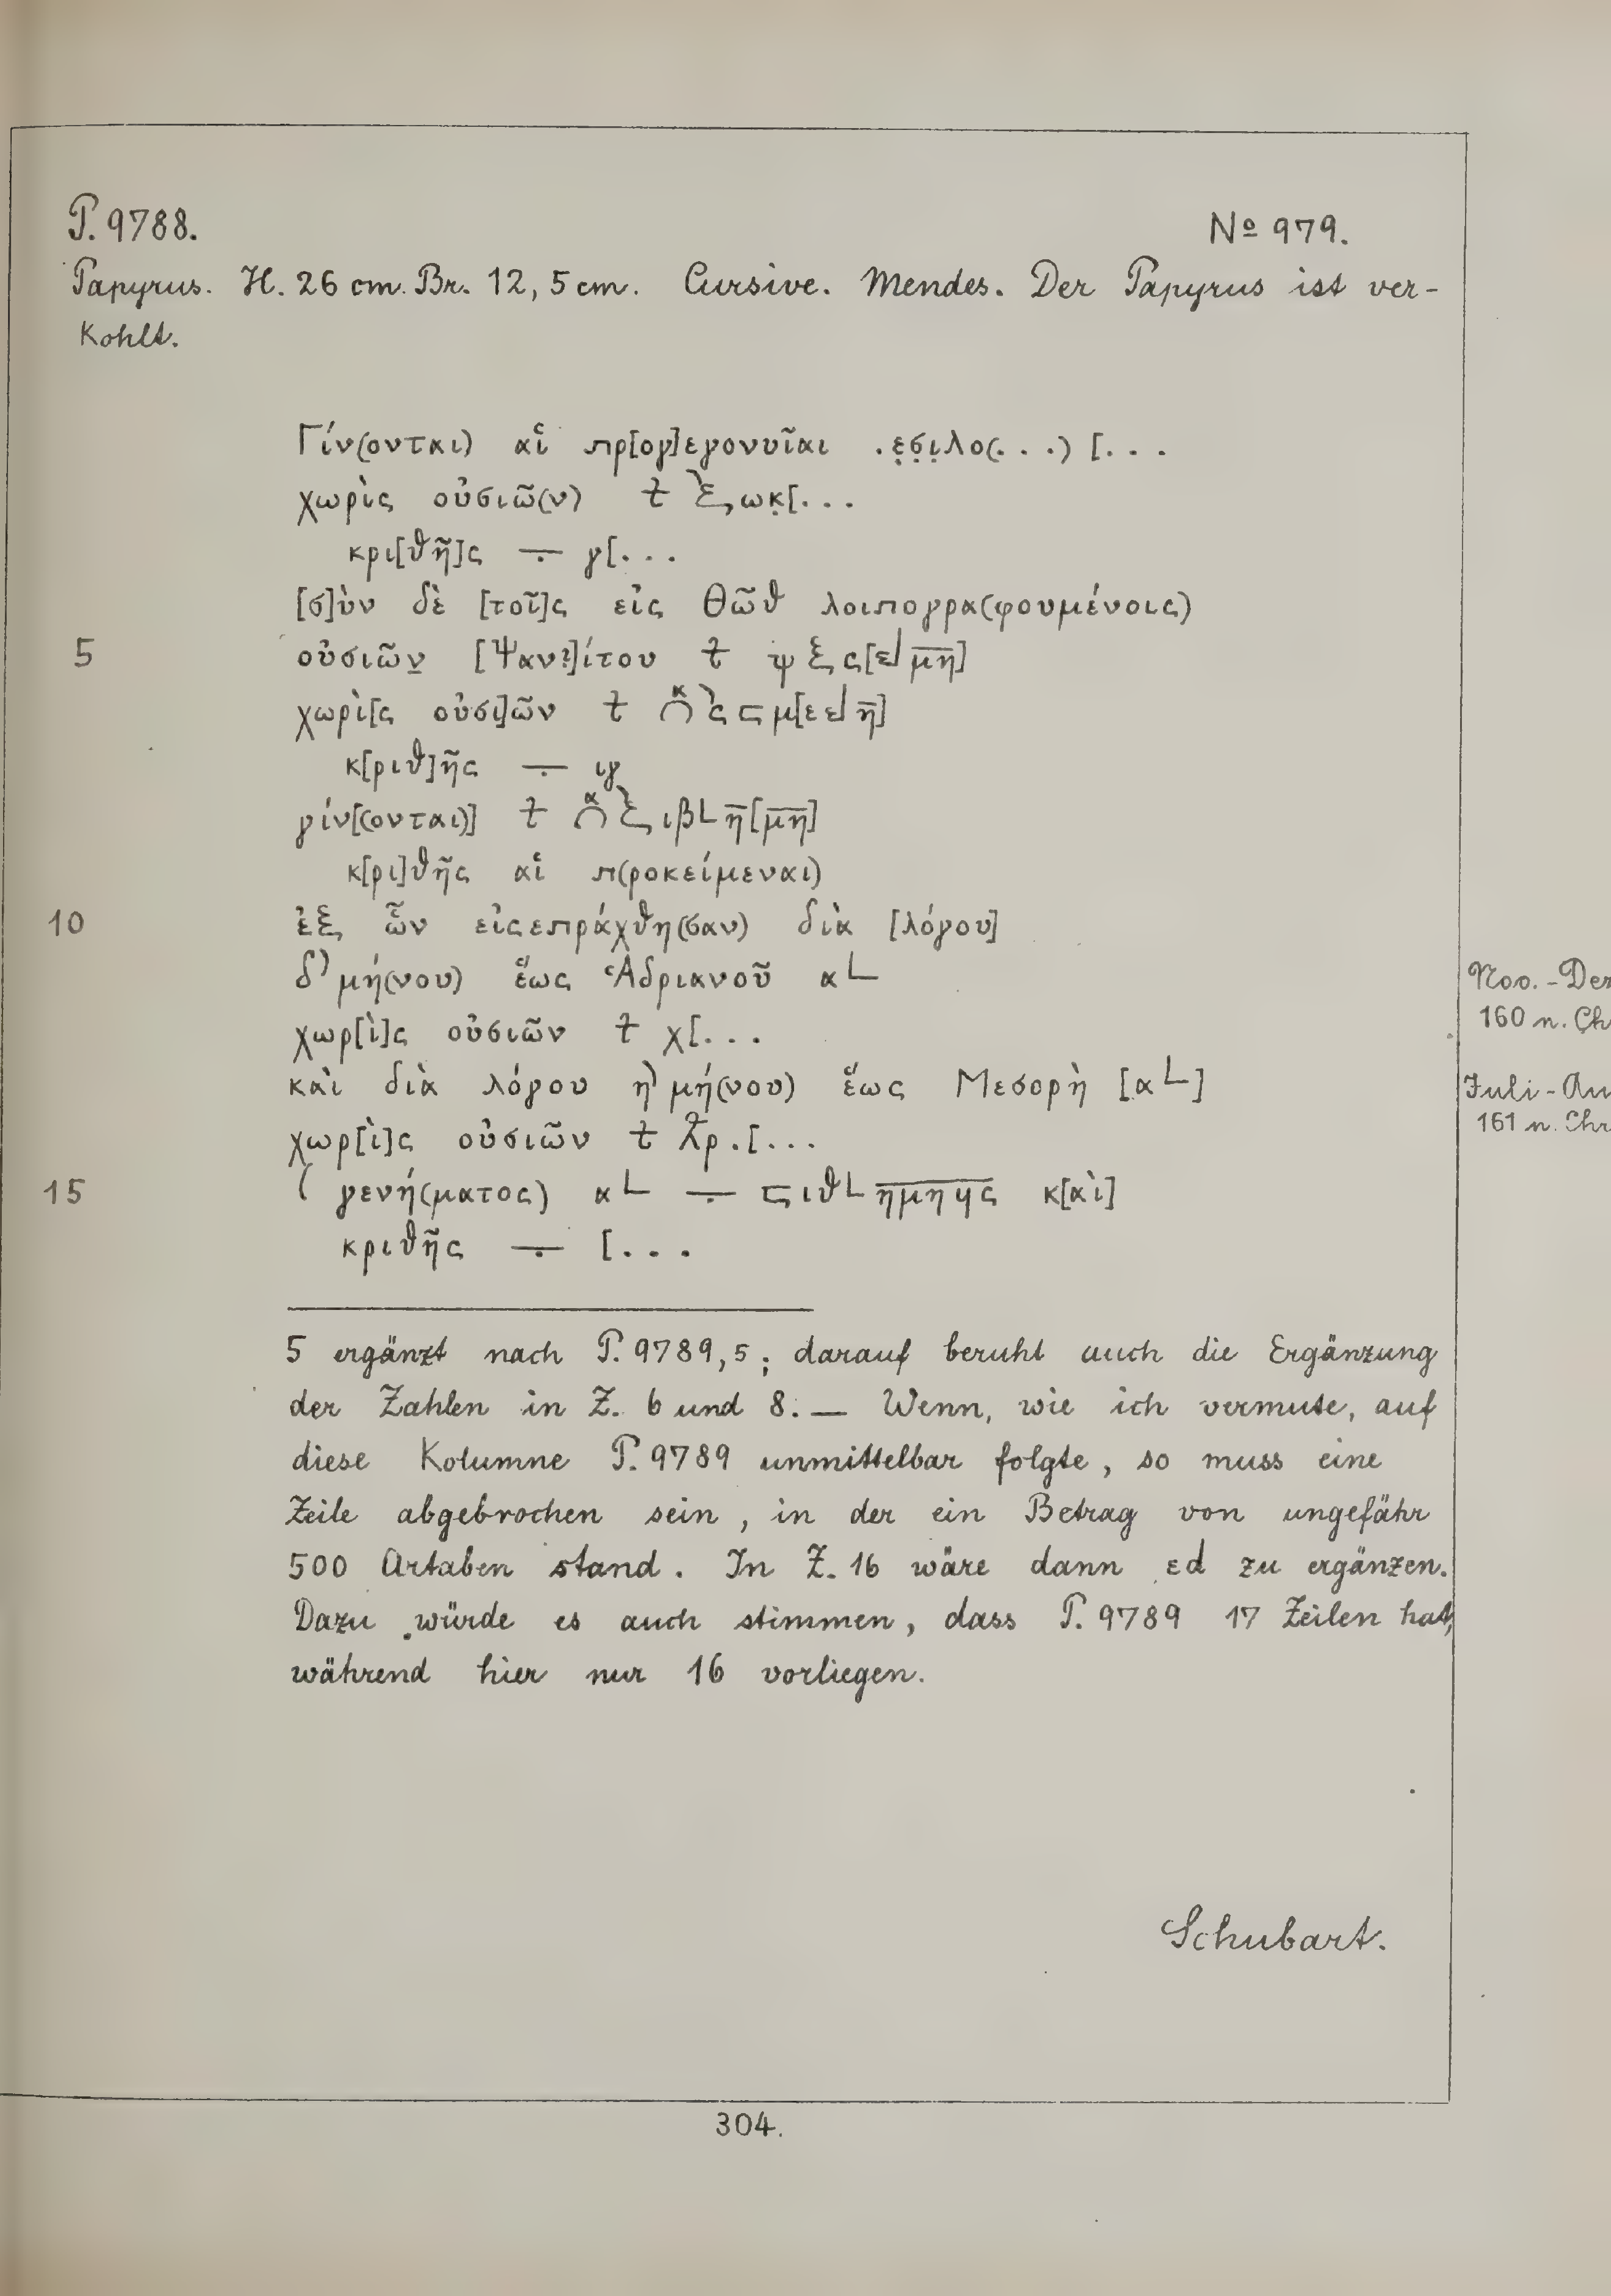 P. 9788. № 979.
Papyrus. H. 26 cm. Br. 12,5 cm. Cursive. Mendes. Der Papyrus ist ver-
kohlt.
Γίν(ονται) αἱ πρ[ογ]εγονυῖαι .ε̣σ̣ι̣λο(. . .) [. . .
χωρὶς οὐσιῶ(ν) ⳨ ξ ωκ̣[. . .
κρι[θῆ]ς ÷ γ[. . .
[σ]ὺν δὲ [τοῖ]ς εἰς Θῶθ λοιπογρα(φουμένοις)
5 οὐσιῶν̣ [Ψαν?]ίτου ⳨ ψξς[εd μ̅η̅]
χωρὶ[ς οὐσι]ῶν
κ[ριθ]ῆς ÷ ιγ
γίν[(ονται)] ιβ𐅵 η̅[μ̅η̅]
κ[ρι]θῆς αἱ π(ροκείμεναι)
10 ἐξ ὧν εἰςεπράχθη(σαν) διὰ [λόγου]
δ' μή(νου) ἕως Ἁδριανοῦ αL
Nov. - De
160 n. Ch
χωρ[ὶ]ς οὐσιῶν ⳨ χ[. . .
καὶ διὰ λόγου η' μή(νου) ἕως Μεσορὴ [αL]
Juli - Au
161 n. Chr
χωρ[ὶ]ς οὐσιῶν
15 ( γενή(ματος) αL ÷ ⊏ιθL η̅μ̅η̅ϥ̅ς̅ κ[αὶ]
κριθῆς ÷ [. . .
5 ergänzt nach P. 9789,5; darauf beruht auch die Ergänzung
der Zahlen in Z. 6 und 8. — Wenn, wie ich vermute, auf
diese Kolumne P. 9789 unmittelbar folgte, so muss eine
Zeile abgebrochen sein, in der ein Betrag von ungefähr
500 Artaben stand. In Z. 16 wäre dann εd zu ergänzen.
Dazu würde es auch stimmen, dass P. 9789 17 Zeilen hat,
während hier nur 16 vorliegen.
Schubart.
304.